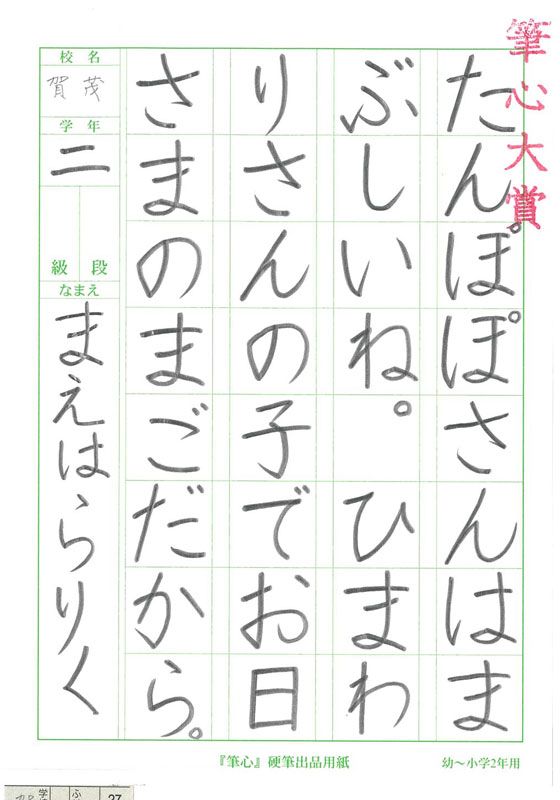 筆心大賞
たんぽぽさんはま
ぶしいね。ひまわ
りさんの子でお日
さまのまごだから。
校名
賀茂
学年
二
段
級
なまえ
まえはらりく
『筆心』硬筆出品用紙
幼～小学2年用